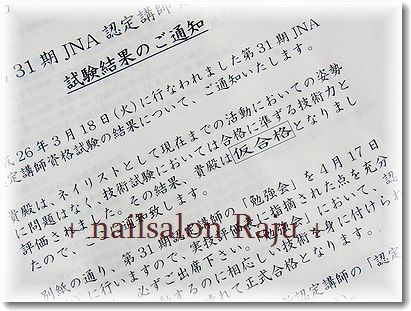 第31期 JNA 認定講師
試験結果のご通知
26年3月18日(火)に行なわれました第31期 JNA
認定講師資格試験の結果について、ご通知いたします。
貴殿は、ネイリストとして現在までの活動においての姿勢
に問題はなく、技術試験においては合格に準ずる技術力と
評価されました。その結果、貴殿は 仮合格 となりまし
たので、ご
別紙の通り、第31期認定講師の「勉強会」を4月17日
に行いますので、実技評価に指摘された点を充分
必ずご出席下さい。
に相応しい技術を身に付けられ
正式合格となります。
認定講師の「認定
+ nailsalon Raju +